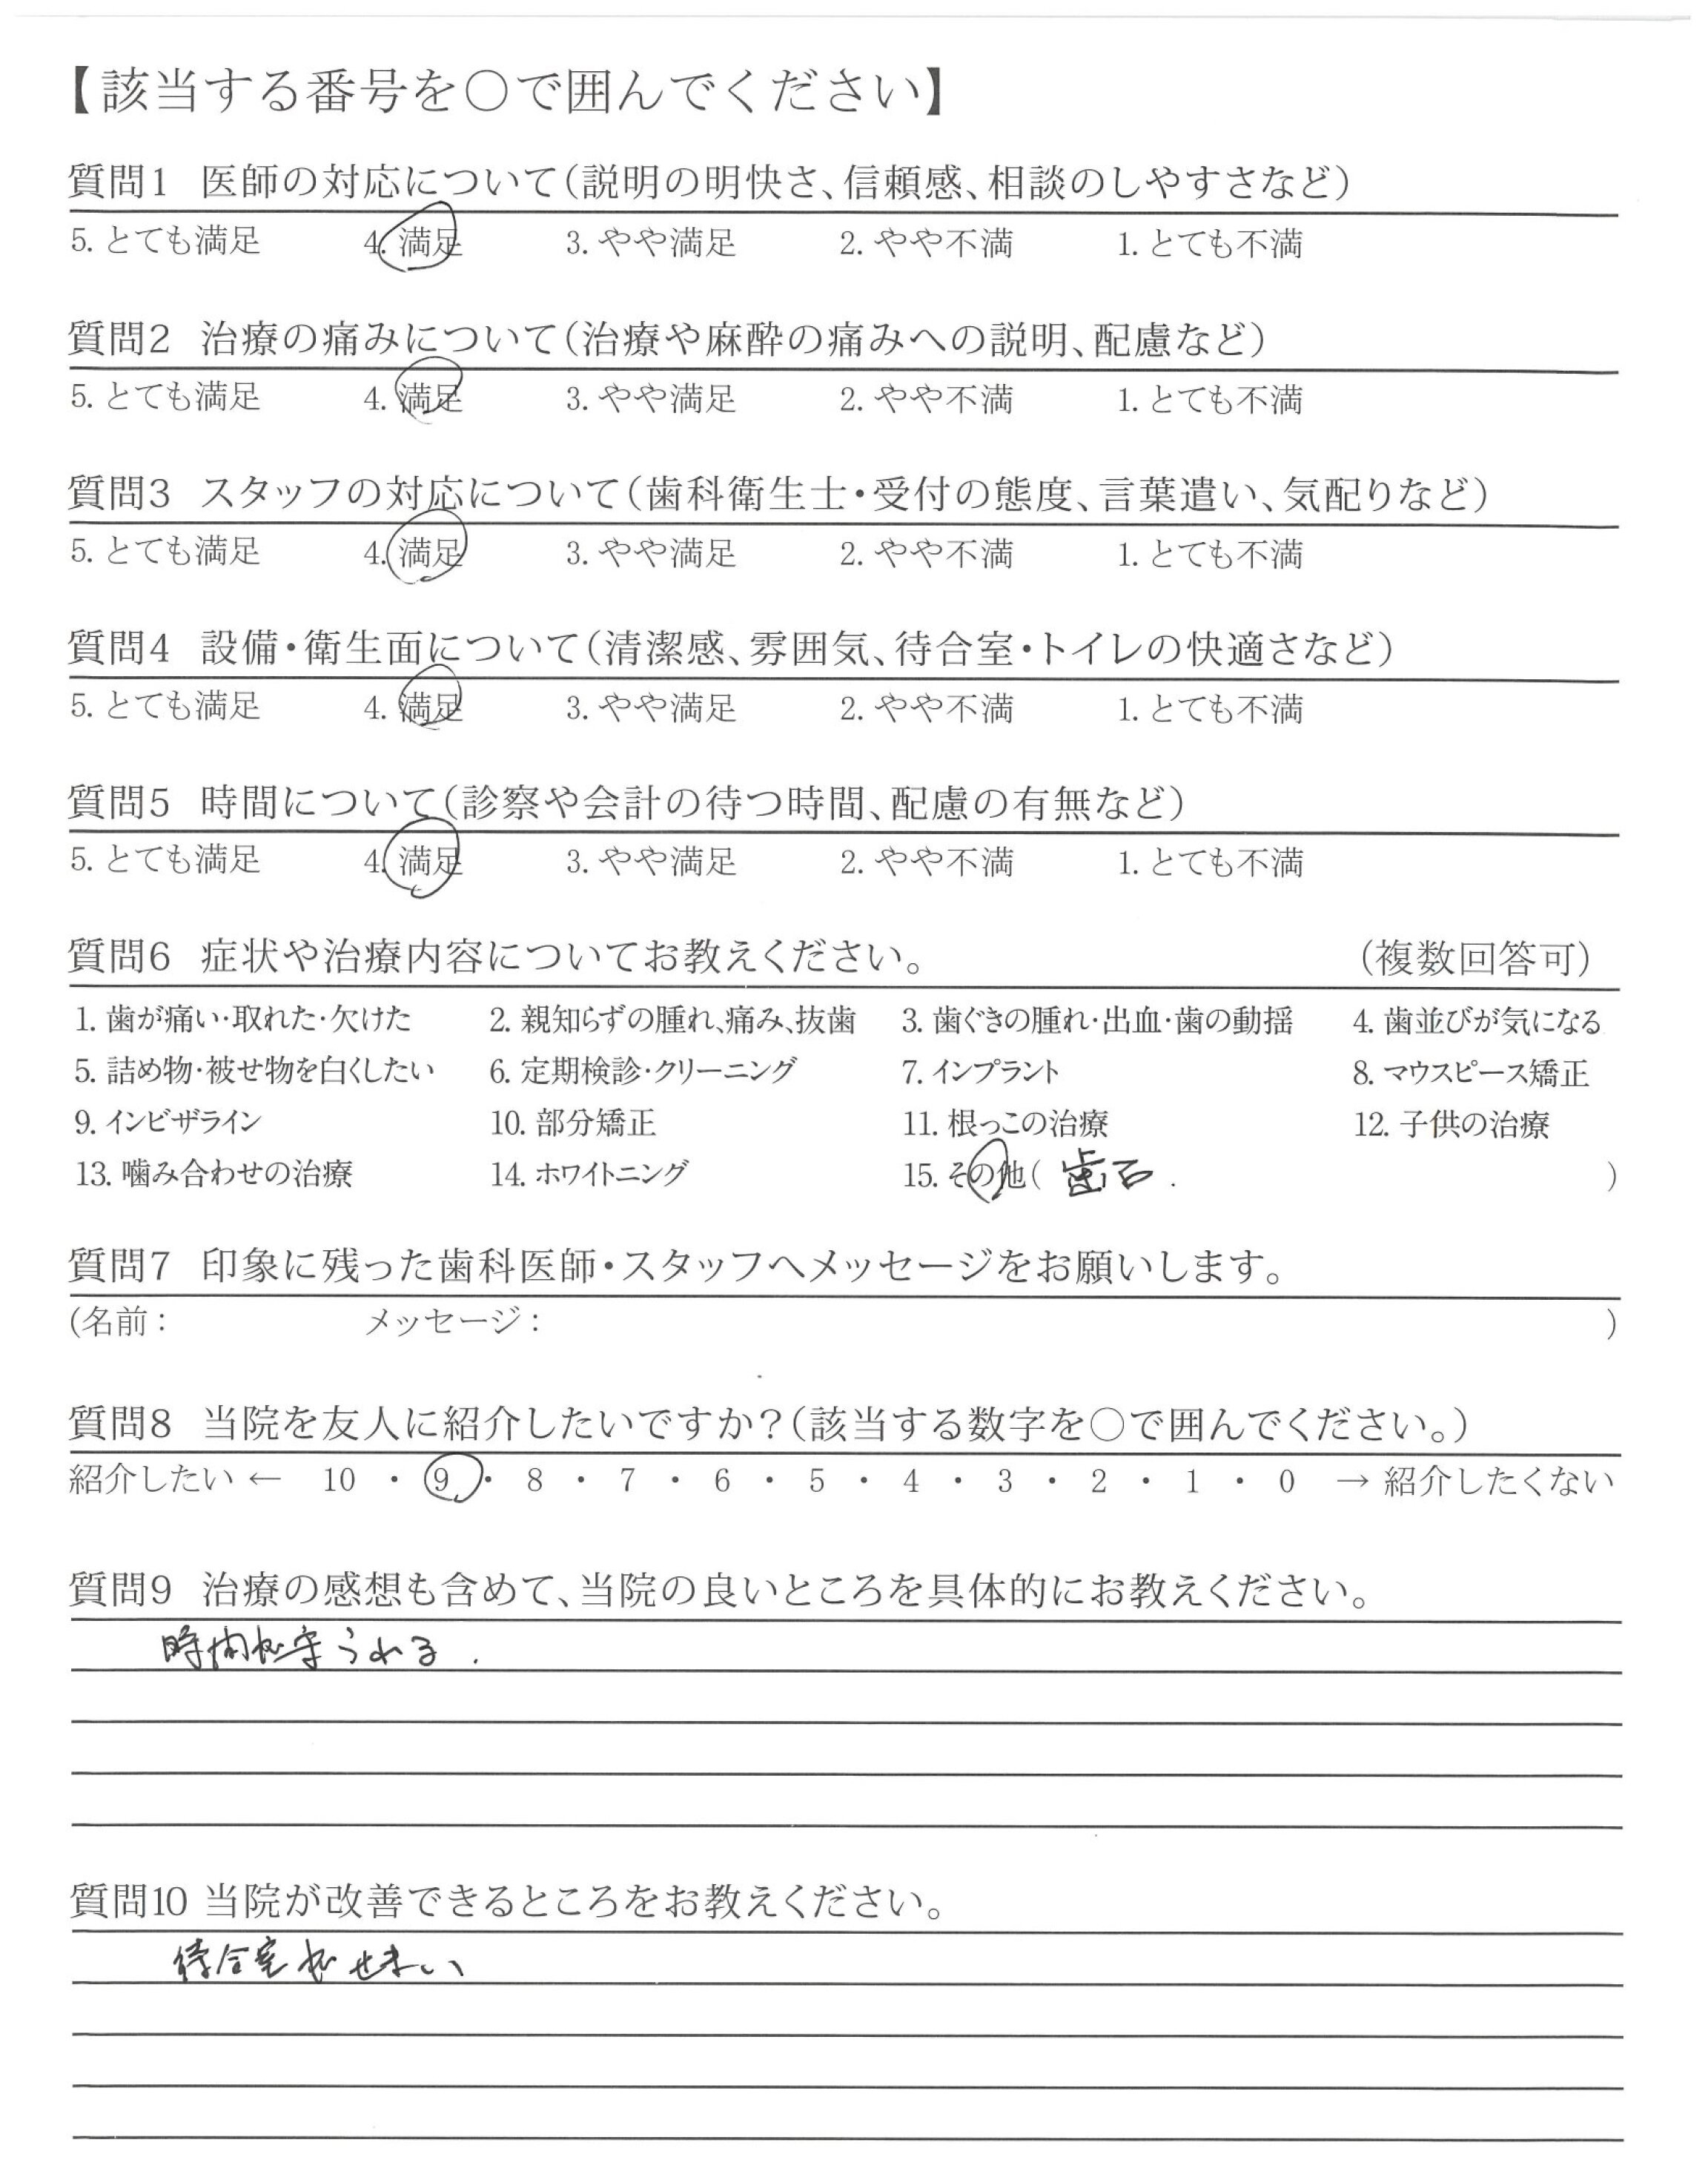 【該当する番号を〇で囲んでください】
質問1 医師の対応について(説明の明快さ、信頼感、相談のしやすさなど)
5. とても満足 4. 満足 3. やや満足 2. やや不満 1. とても不満
質問2 治療の痛みについて(治療や麻酔の痛みへの説明、配慮など)
5. とても満足 4. 満足 3. やや満足 2. やや不満 1. とても不満
質問3 スタッフの対応について(歯科衛生士・受付の態度、言葉遣い、気配りなど)
5. とても満足 4. 満足 3. やや満足 2. やや不満 1. とても不満
質問4 設備・衛生面について(清潔感、雰囲気、待合室・トイレの快適さなど)
5. とても満足 4. 満足 3. やや満足 2. やや不満 1. とても不満
質問5 時間について(診察や会計の待つ時間、配慮の有無など)
5. とても満足 4. 満足 3. やや満足 2. やや不満 1. とても不満
質問6 症状や治療内容についてお教えください。 (複数回答可)
1. 歯が痛い・取れた・欠けた 2. 親知らずの腫れ、痛み、抜歯 3. 歯ぐきの腫れ・出血・歯の動揺 4. 歯並びが気になる
5. 詰め物・被せ物を白くしたい 6. 定期検診・クリーニング 7. インプラント 8. マウスピース矯正
9. インビザライン 10. 部分矯正 11. 根っこの治療 12. 子供の治療
13. 噛み合わせの治療 14. ホワイトニング 15. その他( 歯石. )
質問7 印象に残った歯科医師・スタッフへメッセージをお願いします。
(名前: メッセージ: )
質問8 当院を友人に紹介したいですか?(該当する数字を〇で囲んでください。)
紹介したい ← 10 ・ 9 ・ 8 ・ 7 ・ 6 ・ 5 ・ 4 ・ 3 ・ 2 ・ 1 ・ 0 → 紹介したくない
質問9 治療の感想も含めて、当院の良いところを具体的にお教えください。
時間が守られる.
質問10 当院が改善できるところをお教えください。
待合室がせまい